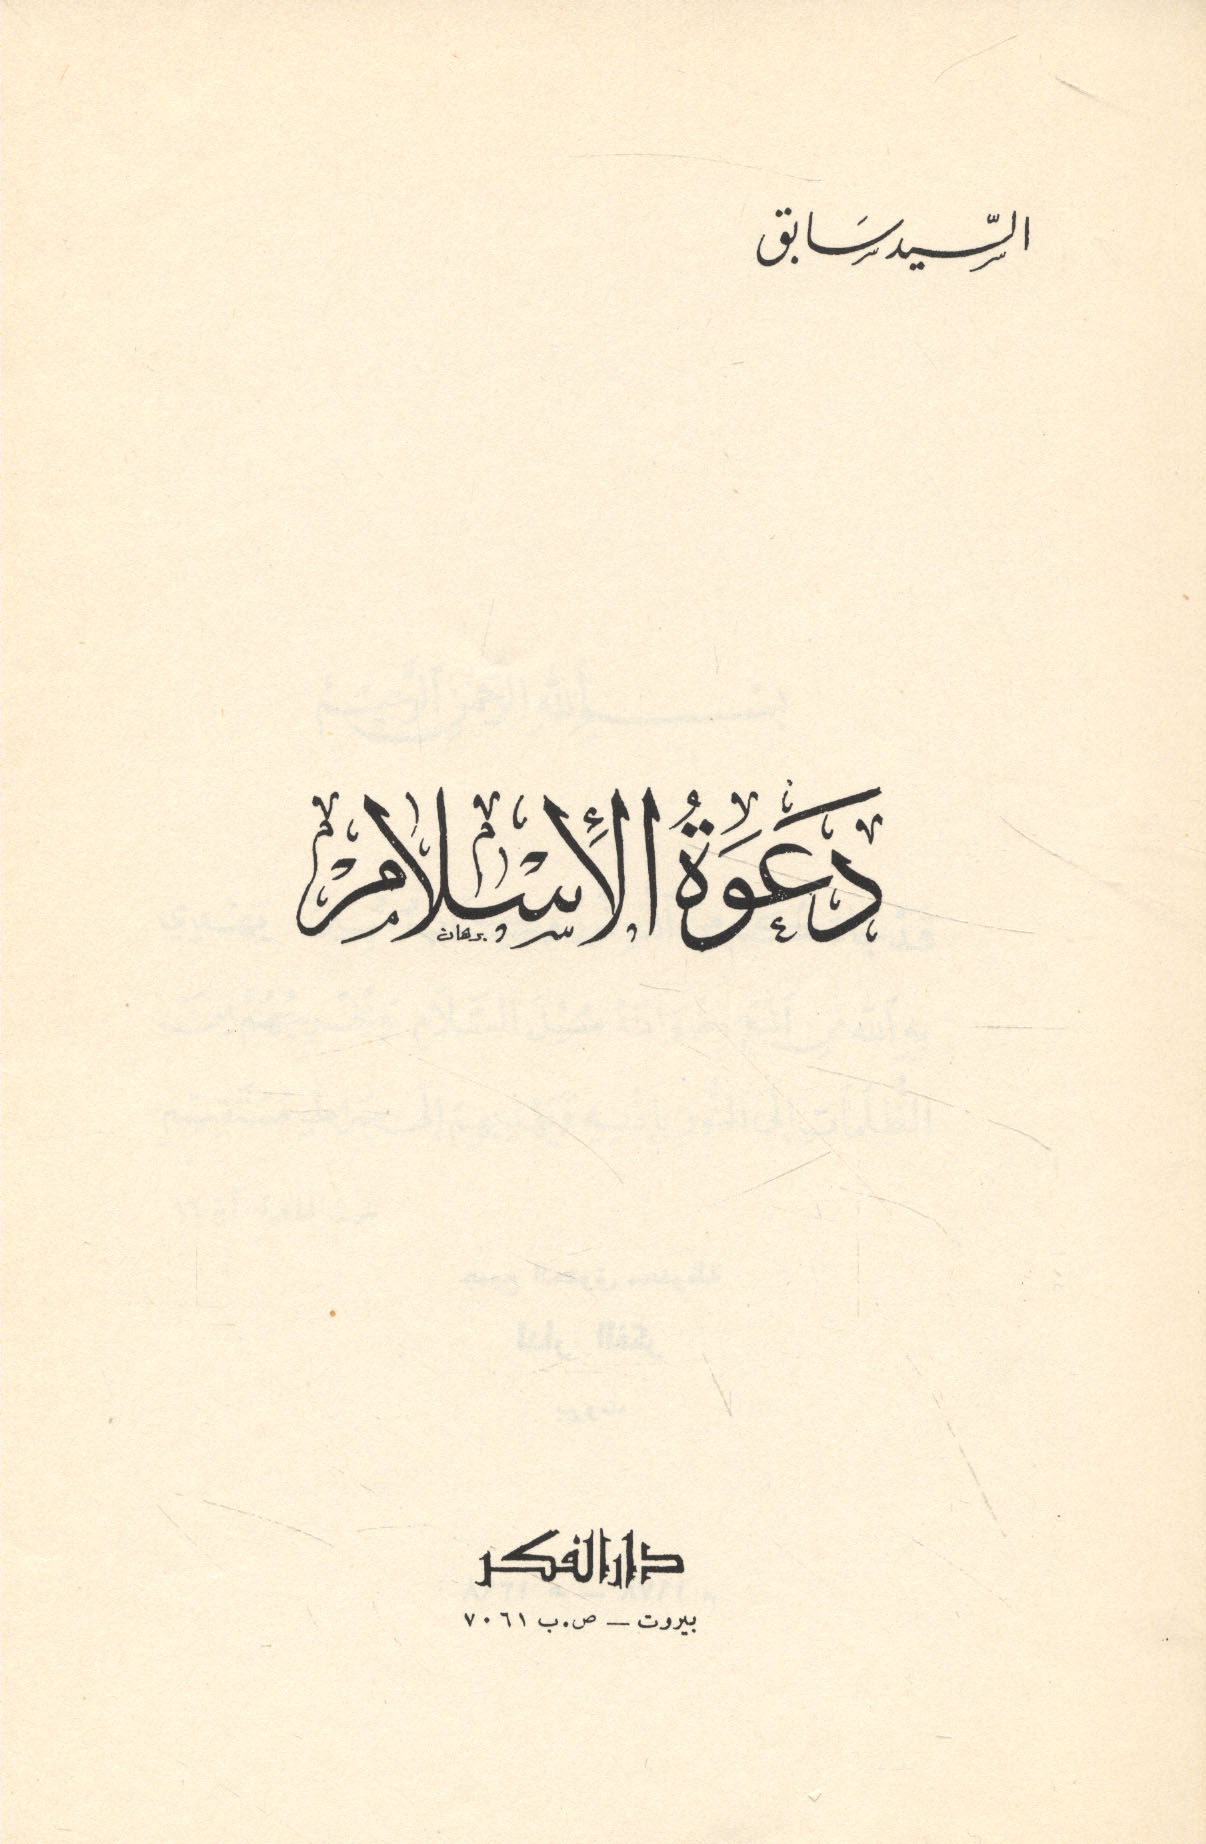 السّيد سَابق
دَعَوَةُ الإِسْلامِ
برهان
دار الفكر
بيروت — ص.ب ٧٠٦١